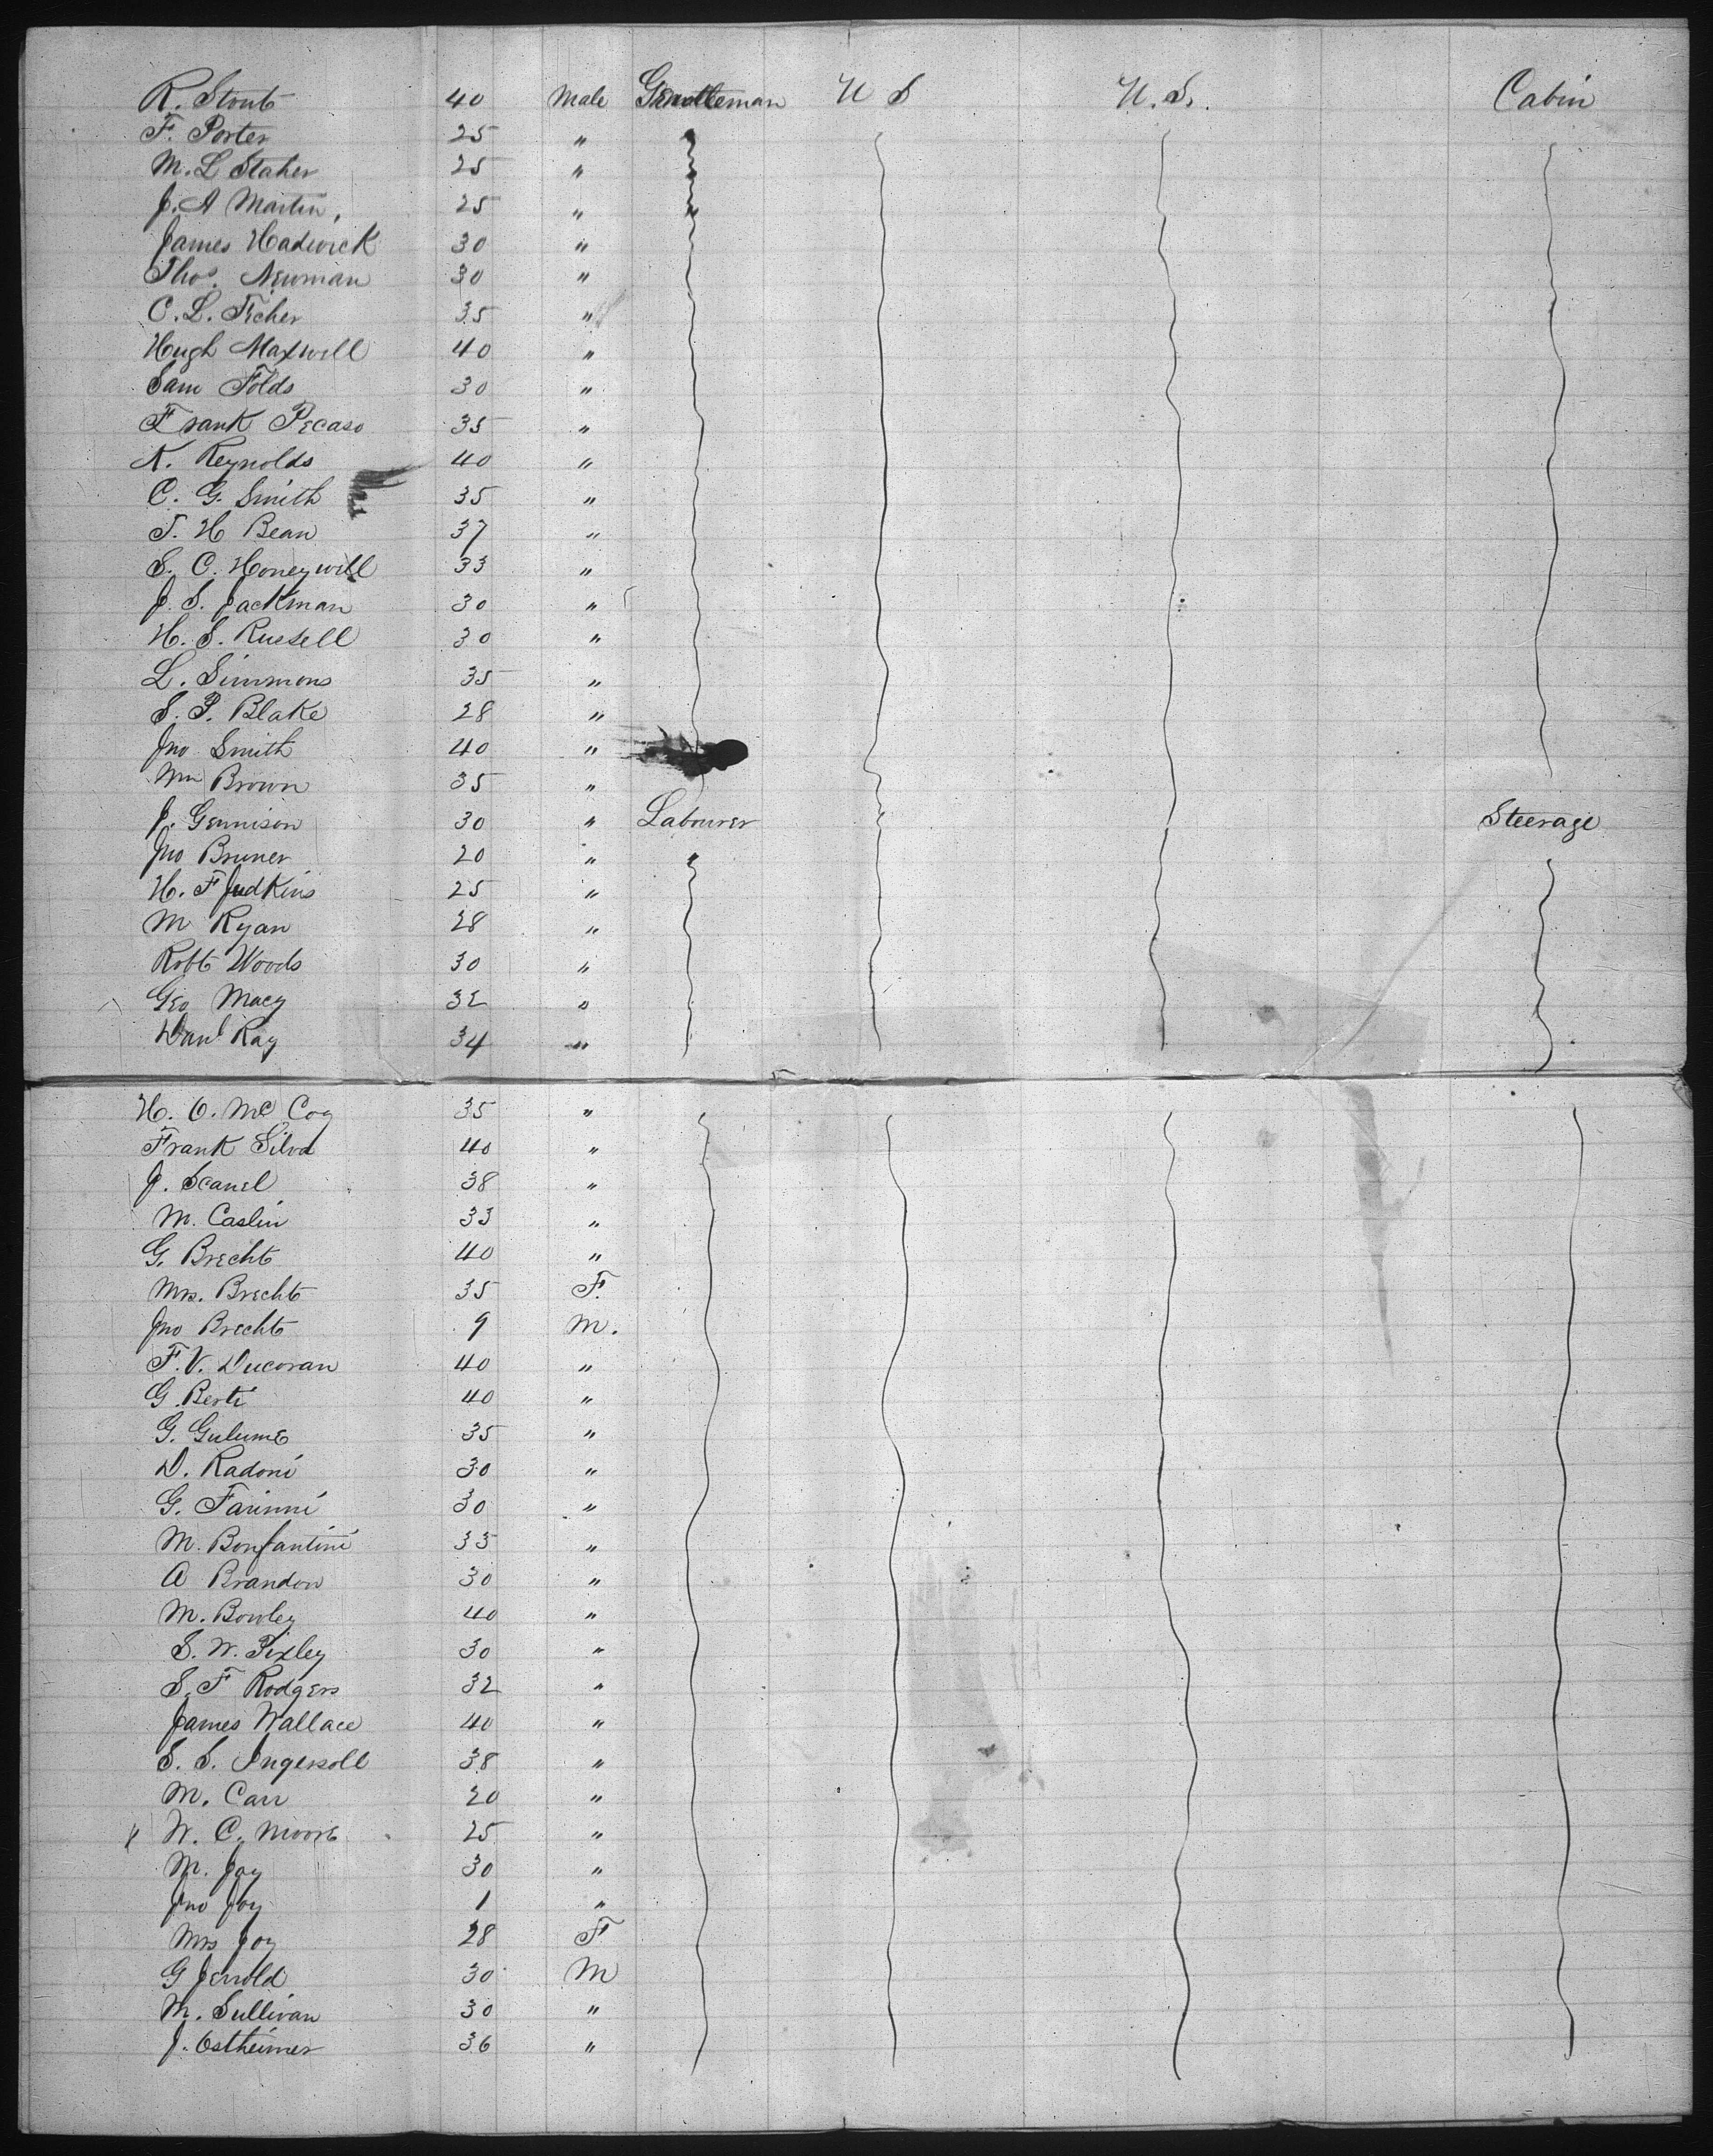 R. Stout 40 Male Gentleman U S U.S. Cabin
F. Porter 25 "
M. L Staher 25 "
J. A Martin, 25 "
James Hadwick 30 "
Thos. Newman 30 "
C. L. Ficher 35 "
Hugh Maxwell 40 "
Sam Folds 30 "
Frank Pecaso 35 "
N. Reynolds 40 "
C. G. Smith 35 "
T. H Bean 37 "
S. C. Honeywill 33 "
J. S. Jackman 30 "
H. S. Russell 30 "
L. Simmons 35 "
S. P. Blake 28 "
Jno Smith 40 "
Wm Brown 35 "
J. Gennison 30 " Labourer Steerage
Jno Bruner 20 "
H. F Judkins 25 "
M Ryan 28 "
Robt Woods 30 "
Geo Macy 32 "
Danl Ray 34 "
H. O. Mc Coy 35 "
Frank Silva 40 "
J. Scanel 38 "
M. Caslin 33 "
G. Brecht 40 "
Mrs. Brecht 35 F.
Jno Brecht 9 M.
F. V. Ducoran 40 "
G. Berti 40 "
G. Gulume 35 "
D. Radoni 30 "
G. Farinni 30 "
M. Bonfantini 33 "
A Brandon 30 "
M. Bowley 40 "
S. W. Pixley 30 "
S. F Rodgers 32 "
James Wallace 40 "
S. S. Ingersoll 38 "
M. Carr 20 "
W. C. Moore 25 "
M. Joy 30 "
Jno Joy 1 "
Mrs Joy 28 F
G Jerrold 30 M
M. Sullivan 30 "
J. Ostheimer 36 "